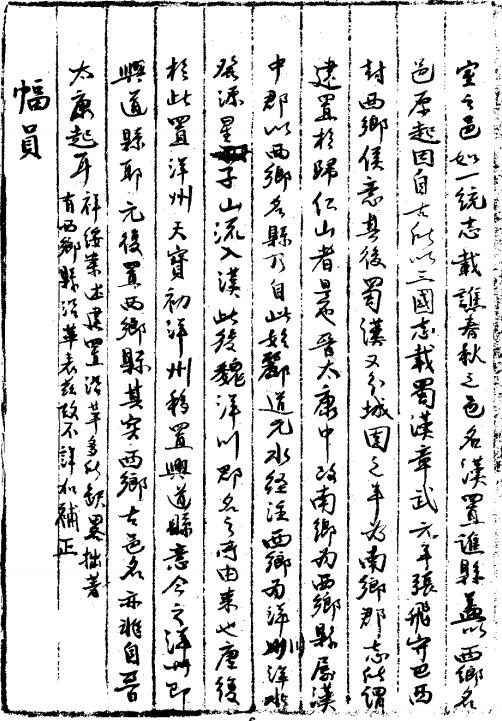 室之邑如一統志載譙春秋之邑名漢置譙縣蓋以西鄉名
邑原起因自古所以三國志載蜀漢章武元年張飛守巴西
封西鄉侯意其後蜀漢又分城固之半為南鄉郡志所謂
建置於歸仁山者是也晉太康中改南鄉為西鄉縣屬漢
中郡以西鄉名縣乃自此始酈道元水經注西鄉為洋川洋水
發源星子山流入漢此後魏洋川郡名之所由來也唐後
於此置洋州天寶初洋州移置興道縣意今之洋州即
興道縣耶元後置西鄉縣其實西鄉古邑名亦非自晉
太康起耳
祥綏案上述建置沿革多所缺畧拙著
有西鄉縣沿革表茲故不詳加補正
幅員